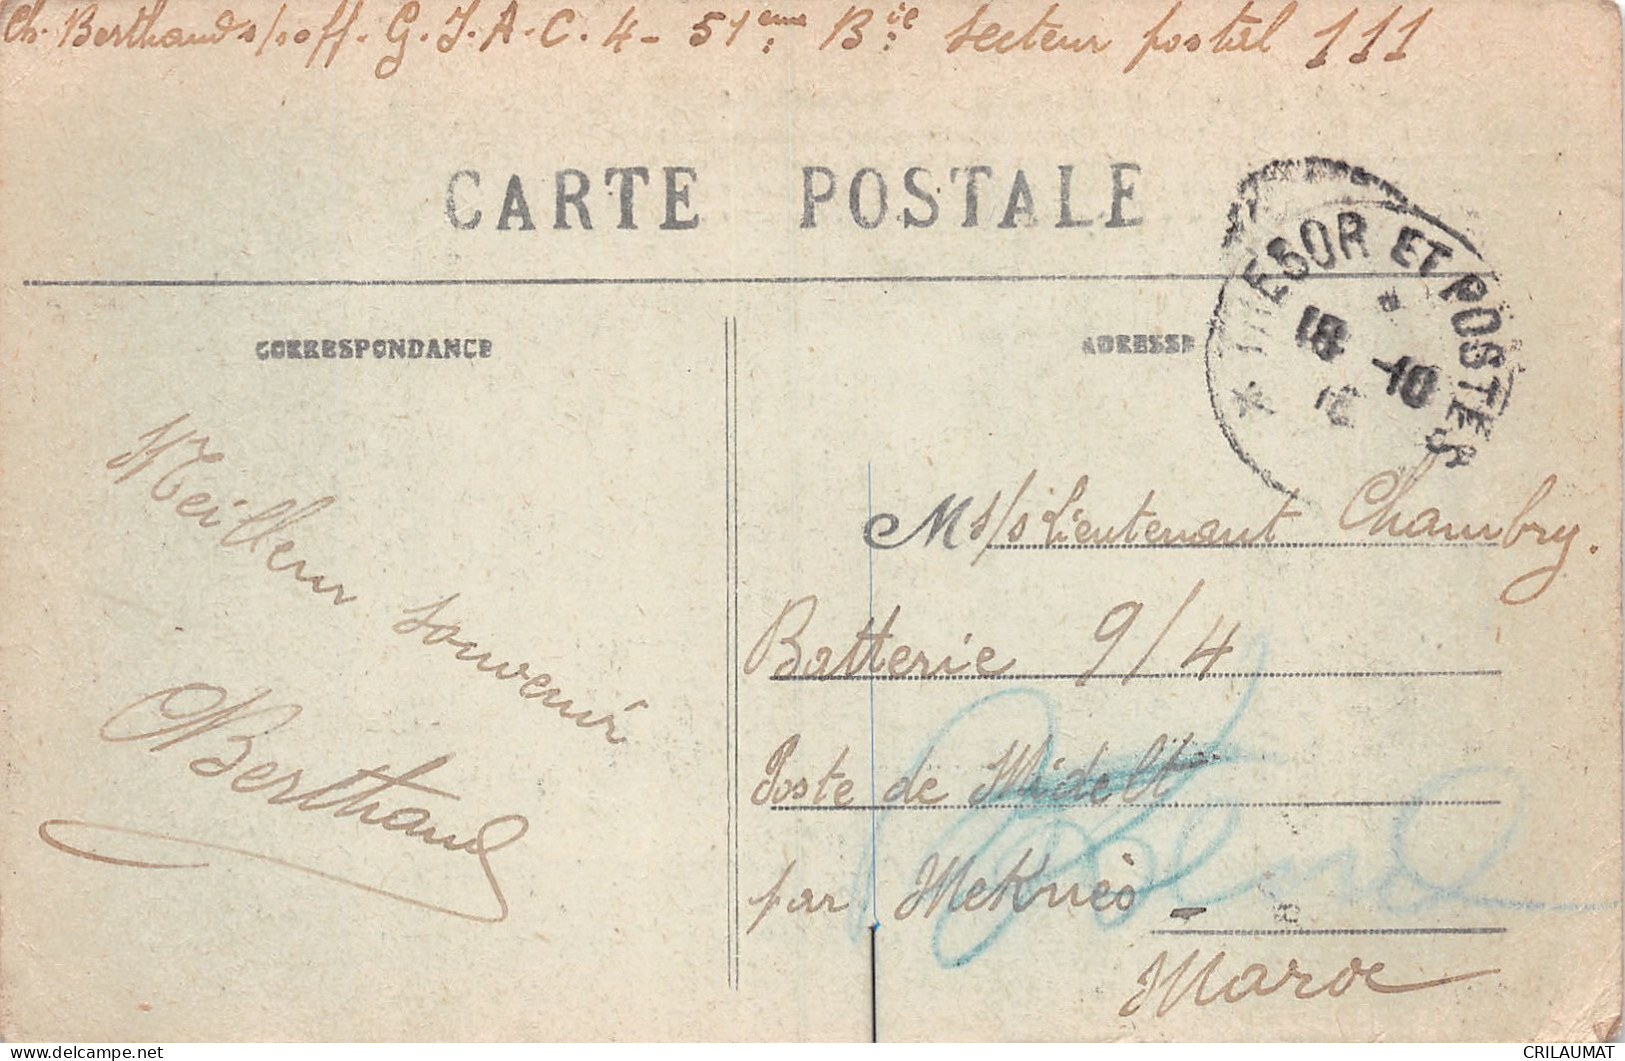 Ch. Berthaud s/soff. G.I.A.C. 4 - 51ème Bie secteur postal 111
CARTE POSTALE
TRESOR ET POSTES
18 -10
CORRESPONDANCE
ADRESSE
Meilleur souvenir
Berthaud
M s/s lieutenant Chambry.
Batterie 9/4
Poste de Midelt
par Meknès -
Maroc
CRILAUMAT